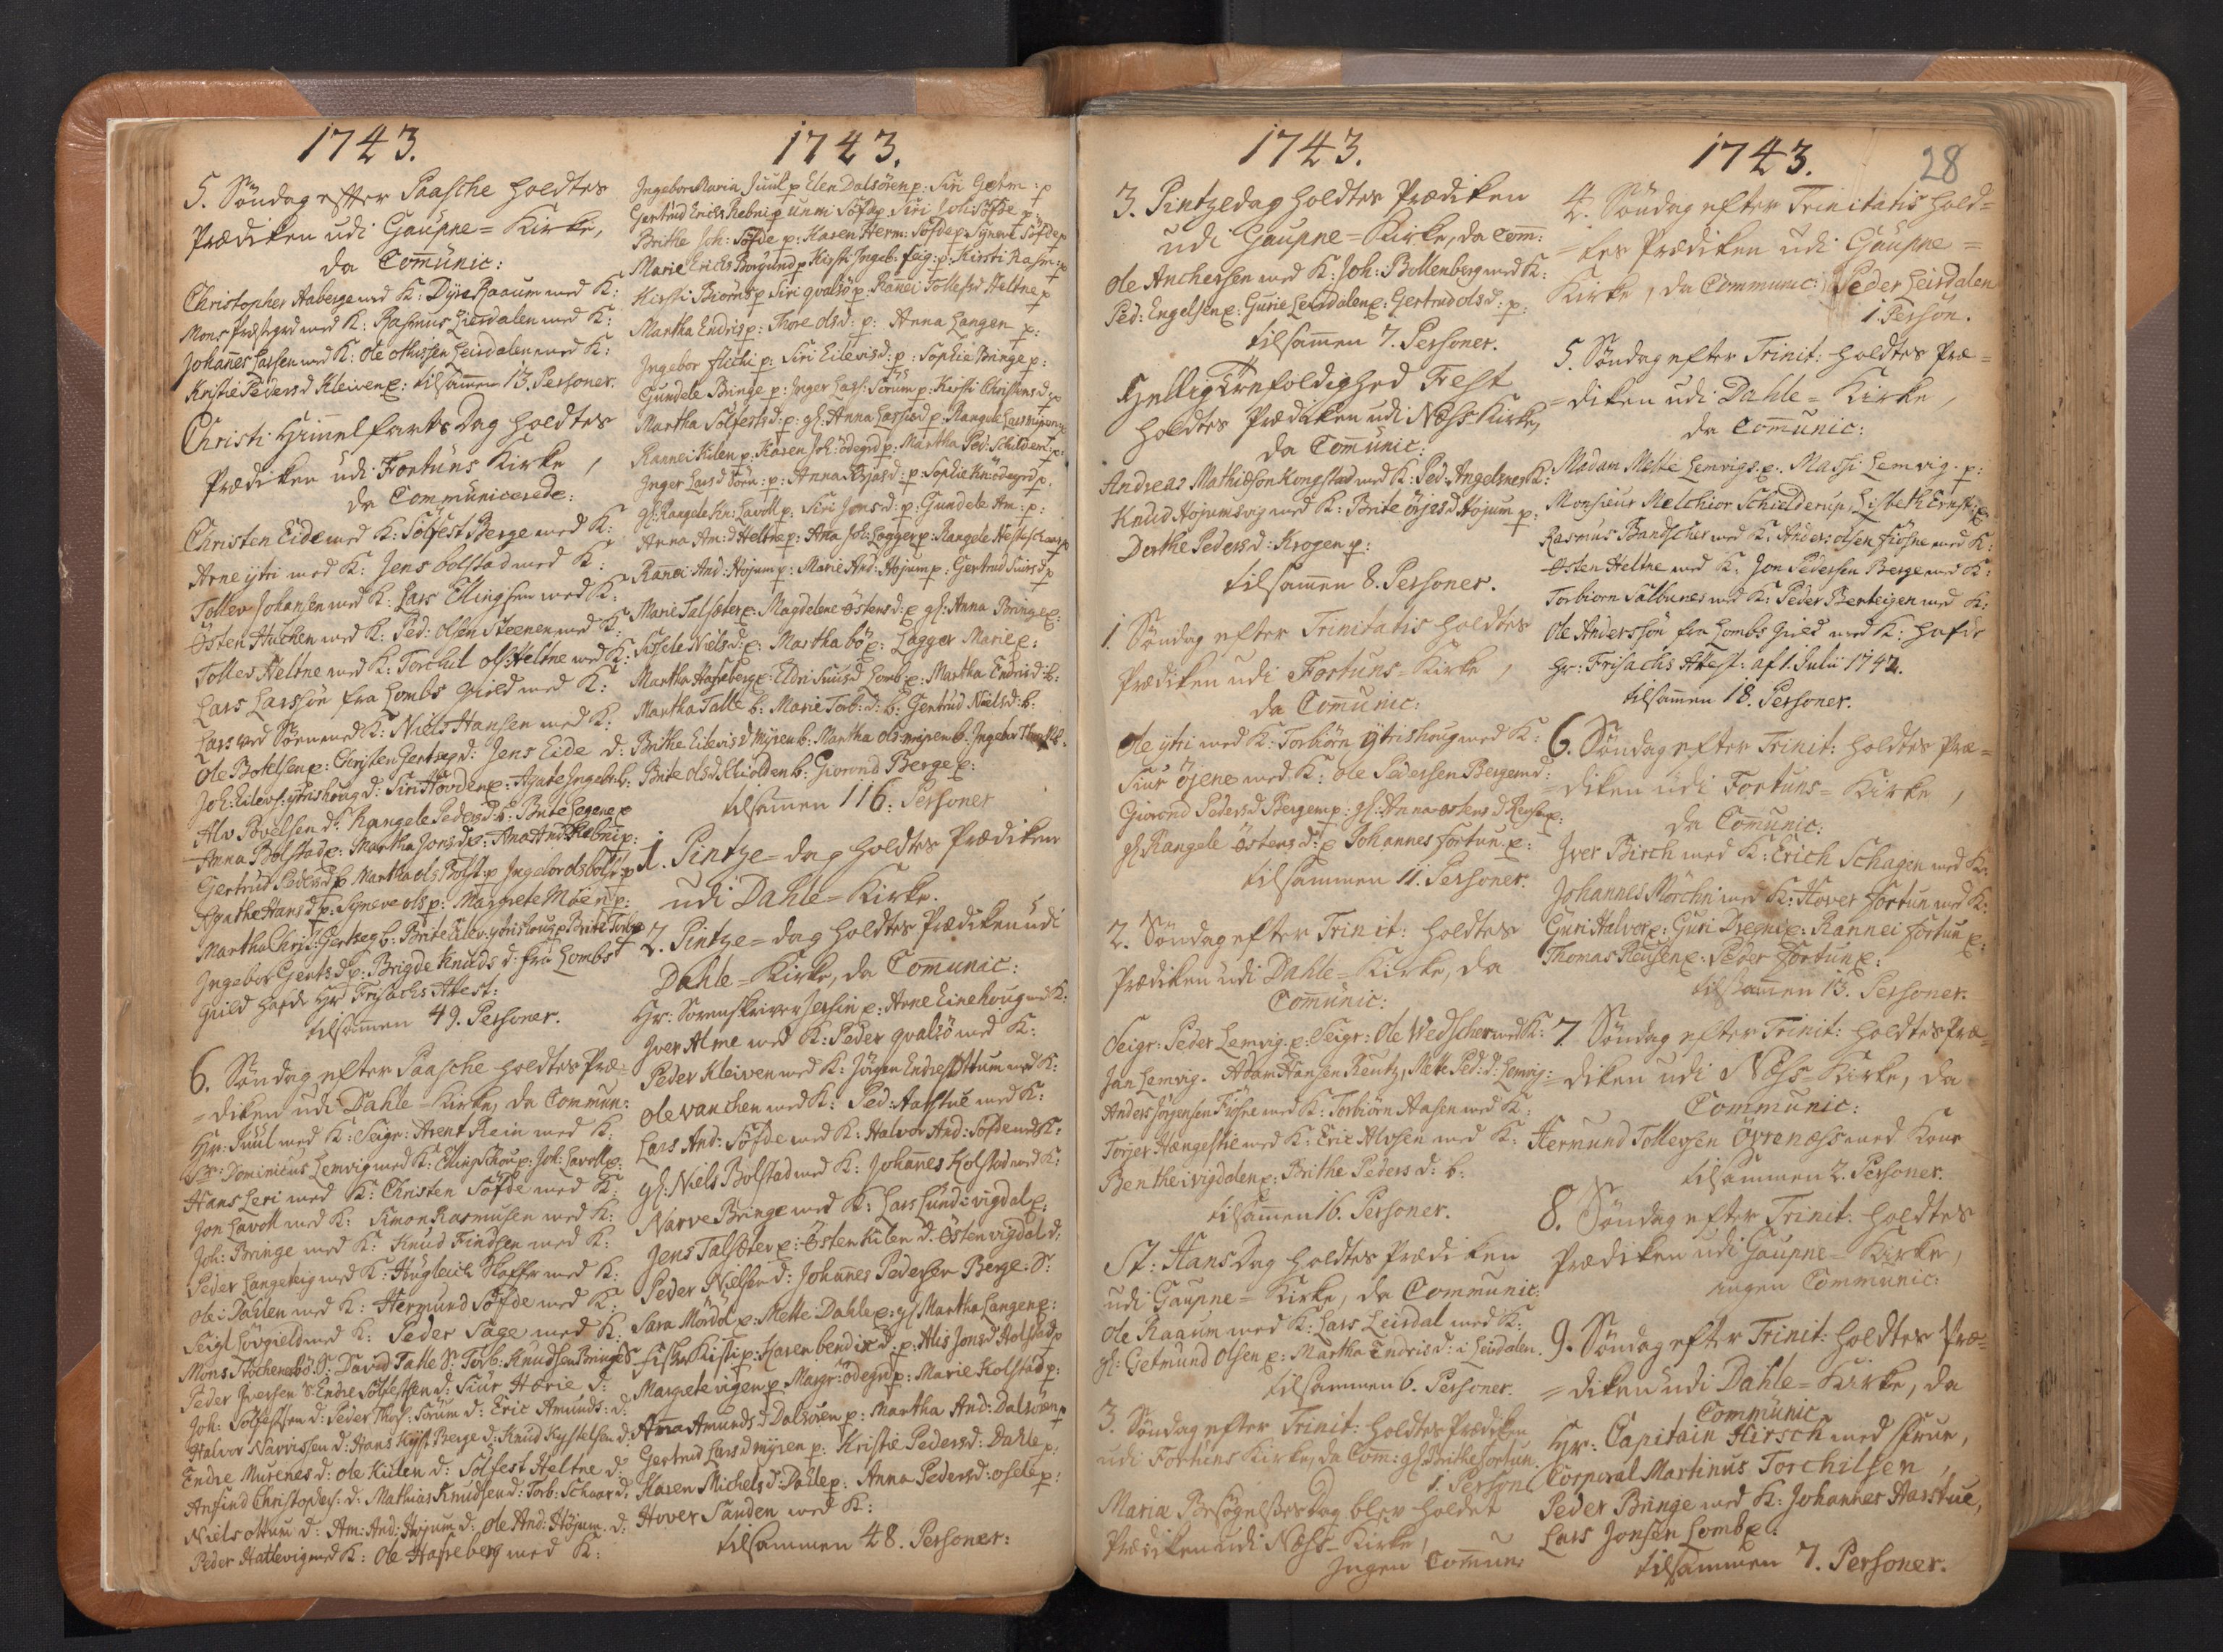 1743.
5. Söndag efter Paasche holdtes
Prædiken udi Gaupne= Kirke,
da Comūnic:
Christopher Aaberge med K: Dÿre Raaum med K:
Mons Præstegrd med K: Rasmus Leirdalen med K:
Johañes Larsen med K: Ole Leirdalen med K:
Kristie Pedersd Kleiven p: tilsam̄en 13. Personer.
Christi Himmelfarts Dag holdtes
Prædiken udi Fortuns Kirke,
da Communicerede:
Christen Eide med K: Solfest Berge med K:
Arne ÿtri med K: Jens bolstad med K:
Tollev Johansen med K: Lars Ellingsen med K:
Østen Hauchen med K: Ped: Olsen Steenen med K:
Tolles Heltne med K: Torchil Ols: Heltne med K:
Lars Larsson fra Lombs Gield med K:
Lars ved Söen med K: Niels Hansen med K:
Ole Botelsen p: Christen Gertsegr d: Jens Eide d:
Joh: Eilevs: ÿtrishoug d: Siri Hovden p: Agate Ingebr: b:
Alv Povelsen d: Rangele Peders d b: Brite Hegene p
Anna Bolstad p: Martha Jons d p: Ana And: Ræbni p:
Gertrud Peders d p Martha Ols Bolst: p Ingebor ols bolst: p
Agathe Hans d p: Sÿneve ols p: Margrete Möen p:
Martha Chris: Gertseg b: Brite Eilev: ytrishoug p Brite Torb: p
Ingebor Gierts d p: Brigde Knuds d: fra Lombs
Gield hafde Hr Frisachs Attest:
tilsam̄en 49. Personer.
6. Söndag efter Paasche holdtes Præ=
=diken udi Dahle=Kirke, da Commun:
Hr: Juul med K: Seigr: Arent Rein med K:
Sr: Dominicus Lemvig med K: Elling Schou p: Joh: Lavoll p:
Hans Leri med K: Christen Söfde med K:
Jon Lavoll med K: Simon Rasmusen med K:
Joh: Bringe med K: Knud Findsen med K:
Peder Langeteig med K: Hugleich Hoffer med K:
Ole i Dahlen med K: Hermund Söfde med K:
Peder Sage med K:
Mons bö S: David Talle S: Torb: Knudsen Bringe S
Peder Iversen S: Endre Solfestsen d: Siur Hærie d:
Joh: Solfestsen d: Peder Thos: Sorum d: Eric Amunds: d:
Halvor Narvissen d: Hans Kÿst Berge d: Knud Kystelsen d:
Endre Murenes d: Ole Kiilen d: Solfest Heltne d:
Anfind Christophers: d: Mathias Knudsen d: Torb: Schaar d:
Niels Ottum d: Am: And: Höjum d: Ole And: Höjum d:
Peder Hattevig med K: Ole Hasseberg med K:
1743.
Ingebor Maria Juul p Elen Dalsören p: Siri Gutm: p
Gertrud Erichs Rebni p Unni Söfde p Siri Joh: Söfde p
Brithe Joh: Söfde p: Karen Herm: Söfde p Sÿnevi Söfde p
Marie Erichs Borgund p Kirsti Ingeb: feig: p: Kirsti Rasm: p
Kirsti Biörns p Siri qvalsö p: Ranei Tollefsd Heltne p
Martha Endris p: Thore Ols d: p: Anna Langen p:
Ingebor flichi p: Siri Eilevis d: p: Sophie Bringe p:
Gundele Bringe p: Inger Lars: Sörum p: Kirsti Christens d p
Martha Solfests d: p: gl: Anna Larses d p: Rangele Lars
Rannei Kilen p: Karen Joh: ödegrd p: Martha Ped: Schilden p:
Inger Lars d Sörn: p: Anna d: p: Sophie Kn: ödegrd p.
gl: Rangele Kn: Lavoll p: Siri Jons d: p: Gundele Am: p:
Anna Am: d Heltne p: Ana Joh: Lÿgger p: Rangele p
Rañei And: Höjum p: Marie And: Höjum p: Gertrud Siurs d p
Marie Talsæter p: Magdelene Østens d: p gl: Anna Bringe p:
Sissele Niels d: p: Martha bö p: Lagger Marie p:
Martha Hasseberg p: Eldri Siurs d Lomb p: Martha Endris d b:
Martha Talle b: Marie Torb: d: b: Gertrud Niels d: b:
Brithe Eilevis d Mÿren b: Martha Ols mÿren b: Ingebor b.
Brite Ols d Schiolden b: Giorond Berge p:
tilsam̄en 116: Personer
1. Pintze=dag holdtes Prædiken
udi Dahle=Kirke.
2. Pintze=dag holdtes Prædiken udi
Dahle=Kirke, da Comūnic:
Hr: Sorenskriver Jersin p: Arne Einehoug med K:
Iver Alme med K: Peder qvalsö med K:
Peder Kleiven med K: Jörgen Endresd Ottum med K:
Ole vanchen med K: Ped: Aarstue med K:
Lars And: Söfde med K: Halvor And: Söfde med K:
gl: Niels Bolstad med K: Johañes Kolstad med K:
Narve Bringe med K: Lars Lund: vigdal p:
Jens Talsæter p: Østen Kilen d: Østen vigdal d:
Peder Nielsen d: Johañes Pedersen Berge: S:
Sara Mördöl p: Mette Dahle p: gl Martha Langen p:
Fisker Kisti p: Karen bendix d: p: Alis Jonsd Aolstad p
Margrete vigen p Margr: ödegrd p: Marie Kolstad p:
Anna Amunds d Dalsören p: Martha And: Dalsören p
Gertrud Lars d mÿren p: Kristie Peders d: Dahle p:
Karen Michels d: Dahle p: Anna Peders d: osele p:
Hover Sanden med K:
tilsammen 48. Personer:
1743.
3. Pintzedag holdtes Prædiken
udi Gaupne=Kirke, da Com̄:
Ole Anchersen med K: Joh: Bollenberg med K:
Ped: Engelsen p: Gurie Leirdalen p: Gertrud ols d: p:
tilsam̄en 7. Personer.
Hellig Trefoldighed Fest
holdtes Prædiken udi Næss Kirke,
da Comūnic:
Andreas Mathidson Kongstad med K: Ped: Angelsnes K:
Knud Höjumsvig med K: Brite örjes d Höjum p:
Dorthe Peders d: Krogen p:
tilsam̄en 8. Personer.
1. Söndag efter Trinitatis holdtes
Prædiken udi Fortuns=Kirke,
da Comūnic:
Ole ÿtri med K: Torbiörn Ÿtrishoug med K:
Siur Öjene med K: Ole Pedersen Bergem d:
Giorond Peders d Bergem p: gl: Anna Østens d p:
gl: Rangele Østens d: p Johannes Fortun p:
tilsammen 11. Personer.
2. Söndag efter Trinit: holdtes
Prædiken udi Dahle=Kirke, da
Comūnic:
Seigr: Peder Lemvig p: Seigr: Ole Wedscher med K:
Jan Lemvig. Adam Hansen Reutz, Mette Ped: d: Lemvig:
Anders Jörgensen Fiösne med K: Torbiörn Aasen med K:
Torjer Hængeshie med K: Eric Alvsen med K:
Benthe i vigdalen p: Brithe Peders d: b:
tilsam̄en 16. Personer.
St: Hans Dag holdtes Prædiken
udi Gaupne=Kirke, da Communic:
Ole Raaum med K: Lars Leirdal med K:
gl: Getmund Olsen p: Martha Endris d: i Leirdalen.
tilsammen 6. Personer.
3. Söndag efter Trinit: holdtes Prædiken
udi Fortuns Kirke, da Com̄: gl: Brithe Fortun.
1. Person
Mariæ Besögelses Dag blev holdet
Prædiken udi Næss=Kirke,
Ingen Comūn:
1743.
28
4. Söndag efter Trinitatis hold=
=tes Prædiken udi Gaupne=
Kirke, da Communic: Peder Leirdalen
1. Person.
5. Söndag efter Trinit: holdtes Præ=
=diken udi Dahle=Kirke,
da Comūnic:
Madam Mette Lemvigs p. Massi Lemvig. p:
Monsieur Melchior Schielderup, Lisbeth Ernst: p
Rasmus Bandscher med K: Anders: olsen Fiösne med K:
Østen Heltne med K: Jon Pedersen Berge med K:
Torbiorn Salbunes med K: Peder Berteigen med K:
Ole Anderssön fra Lombs Gield med K: hafde
Hr: Frisachs Attest: af 1. Julii 1742.
tilsam̄en 18. Personer.
6. Söndag efter Trinit: holdtes Præ=
=diken udi Fortuns=Kirke,
da Comūnic:
Iver Birch med K: Erich Schagen med K:
Johannes Mörchri med K: Hover Fortun med K:
Guri Halvor p: Guri Dregni p: Rannei Fortun p:
Thomas Reusen p: Peder Fortun p:
tilsam̄en 13. Personer.
7 Söndag efter Trinit: holdtes Præ=
=diken udi Næss=Kirke, da
Communic:
Hermund Tollevsen Övrenæss med Kone
tilsammen 2. Personer.
8. Söndag efter Trinit: holdtes
Prædiken udi Gaupne=Kirke,
ingen Communic:
9. Söndag efter Trinit: holdtes Præ=
=diken udi Dahle=Kirke, da
Communic
Hr: Capitain Hirsch med Frue,
Corporal Martinus Torchilsen,
Peder Bringe med K: Johannes Aarstue,
Lars Jonsen Lomb p:
tilsammen 7. Personer.